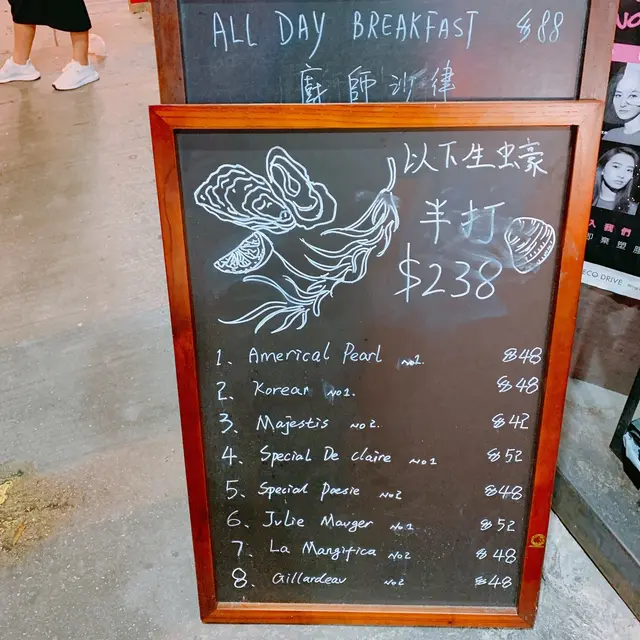 ALL DAY BREAKFAST $88
廚師沙律
以下生蠔
半打
$238
1. Americal Pearl No1. $48
2. Korean No1. $48
3. Majestis No2. $42
4. Special De Claire No1 $52
5. Special Poesie No2 $48
6. Julie Mauger No1 $52
7. La Mangifica No2 $48
8. Gillardeau No2 $48
ECO DRIVE